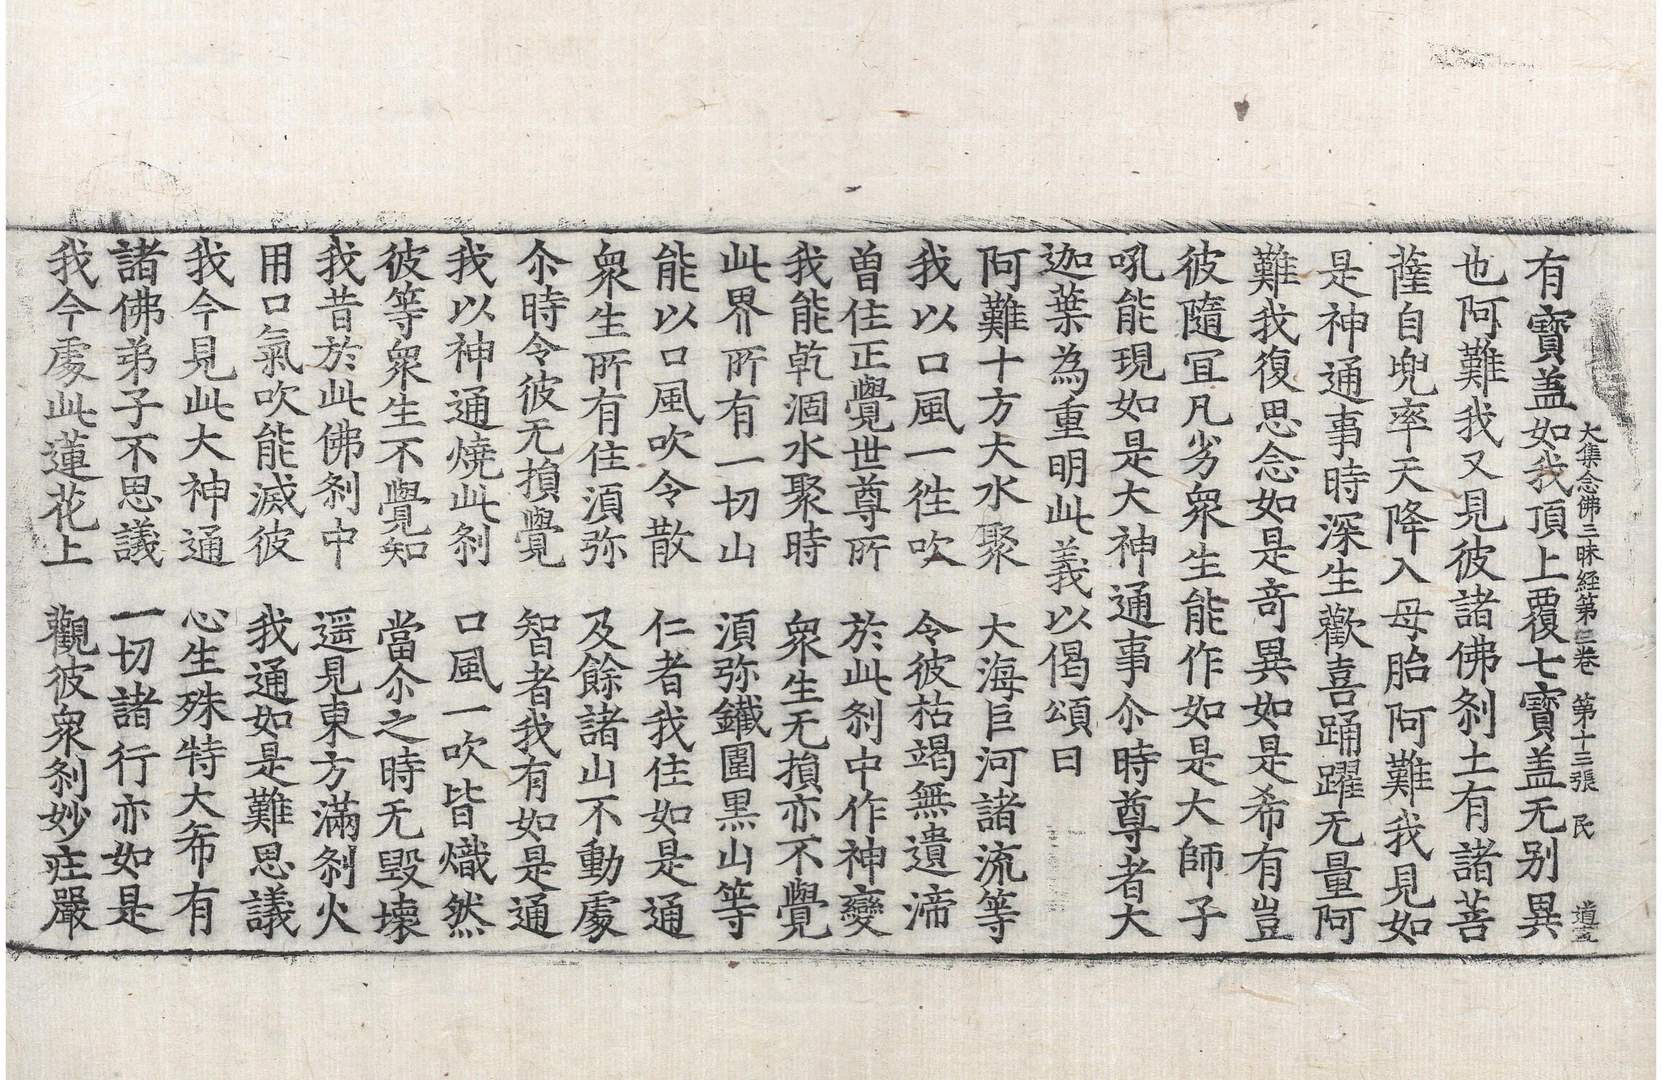 大集念佛三昧経第三巻 第十三張 民 道元
有寶盖如我頂上覆七寶盖无别異
也阿難我又見彼諸佛刹土有諸菩
薩自兜率天降入母胎阿難我見如
是神通事時深生歡喜踊躍无量阿
難我復思念如是竒異如是希有豈
彼隨冝凡劣衆生能作如是大師子
吼能現如是大神通事尒時尊者大
迦葉為重明此義以偈頌曰
阿難十方大水聚 大海巨河諸流等
我以口風一徃吹 令彼枯竭無遺渧
曾住正覺世尊所 於此刹中作神變
我能乾涸水聚時 衆生无損亦不覺
此界所有一切山 湏弥鐵圍黒山等
能以口風吹令散 仁者我住如是通
衆生所有住湏弥 及餘諸山不動處
尒時令彼无損覺 智者我有如是通
我以神通燒此刹 口風一吹皆熾然
彼等衆生不覺知 當尒之時无毀壊
我昔於此佛刹中 遥見東方滿刹火
用口氣吹能滅彼 我通如是難思議
我今見此大神通 心生殊特大希有
諸佛弟子不思議 一切諸行亦如是
我今處此蓮花上 觀彼衆刹妙莊嚴